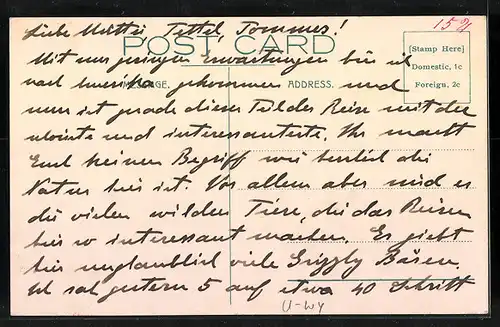 Liebe Mutter, Tettel, Tommes! 15 y
POST CARD
[Stamp Here]
Domestic, 1c
Foreign, 2c
Mit nur geringen Erwartungen bin ich
nach Amerika gekommen und
MESSAGE. ADDRESS.
nun ist grade dieser Teil der Reise mit der
schönste und interessanteste. Ihr macht
Euch keinen Begriff wie herrlich die
Natur hier ist. Vor allem aber sind es
die vielen wilden Tiere, die das Reisen
hier so interessant machen. Es giebt
hier unglaublich viele Grizzly Bären.
Ich sah gestern 5 auf etwa 40 Schritt
U-WY